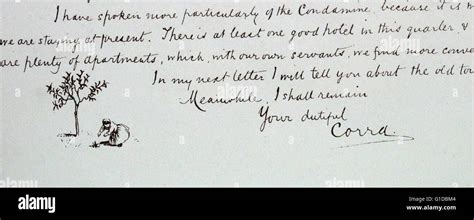 I have spoken more particularly of the Condamine, because it is
we are staying at present. There is at least one good hotel in this quarter, &
are plenty of apartments, which, with our own servants, we find more conve
In my next letter I will tell you about the old to
Meanwhile, I shall remain
Your dutiful
Corra.
alamy stock photo
G1DBM4
www.alamy.com